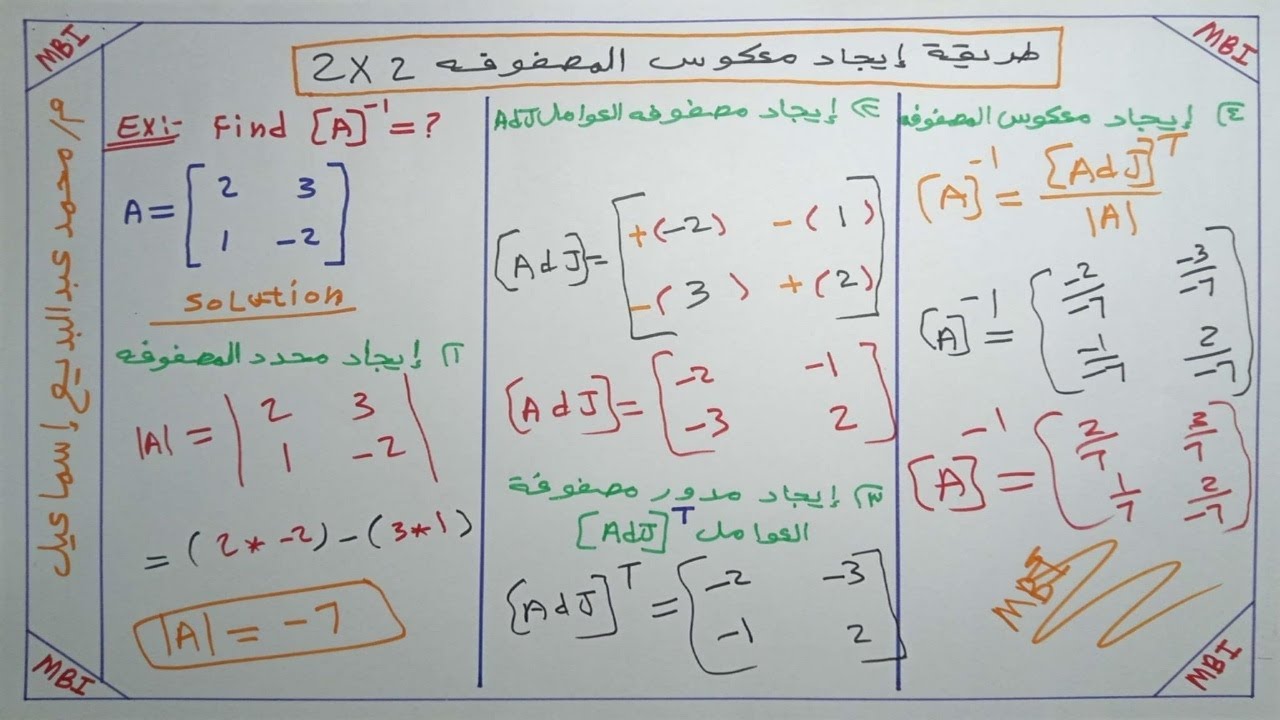 MBI
MBI
طريقة إيجاد معكوس المصفوفه 2X2
م/ محمد عبد البديع إسماعيل
Ex:- Find [A]⁻¹ = ?
A = [ 2 3
1 -2 ]
Solution
١) إيجاد محدد المصفوفه
|A| = | 2 3
1 -2 |
= (2 * -2) - (3 * 1)
|A| = -7
٢) إيجاد مصفوفه العوامل AdJ
[AdJ] = [ +(-2) -(1)
-(3) +(2) ]
[AdJ] = [ -2 -1
-3 2 ]
٣) إيجاد مدور مصفوفة
العوامل [AdJ]ᵀ
[AdJ]ᵀ = [ -2 -3
-1 2 ]
٤) إيجاد معكوس المصفوفه
[A]⁻¹ = [AdJ]ᵀ / |A|
[A]⁻¹ = [ -2/-7 -3/-7
-1/-7 2/-7 ]
[A]⁻¹ = [ 2/7 3/7
1/7 2/-7 ]
MBI
MBI
MBI